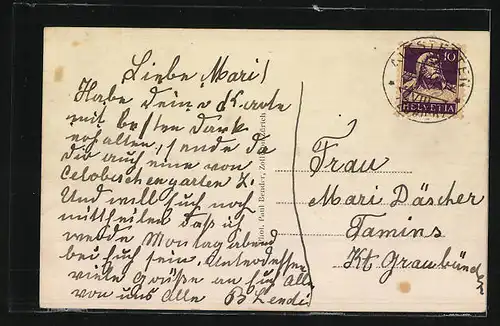 Liebe Mari!
Habe Deine Karte
mit besten Dank
erhalten, sende
Dir auch eine von
Und will Euch noch
mittheilen daß ich
werde Montag abend
bei Euch sein. Unterdessen
viele Grüße an Euch Alle
von uns Alle B Lendi
Phot. Paul Bender, Zollikon-Zürich
ALTSTETTEN
10
HELVETIA
Frau
Mari Däscher
Tamins
Kt Graubünden